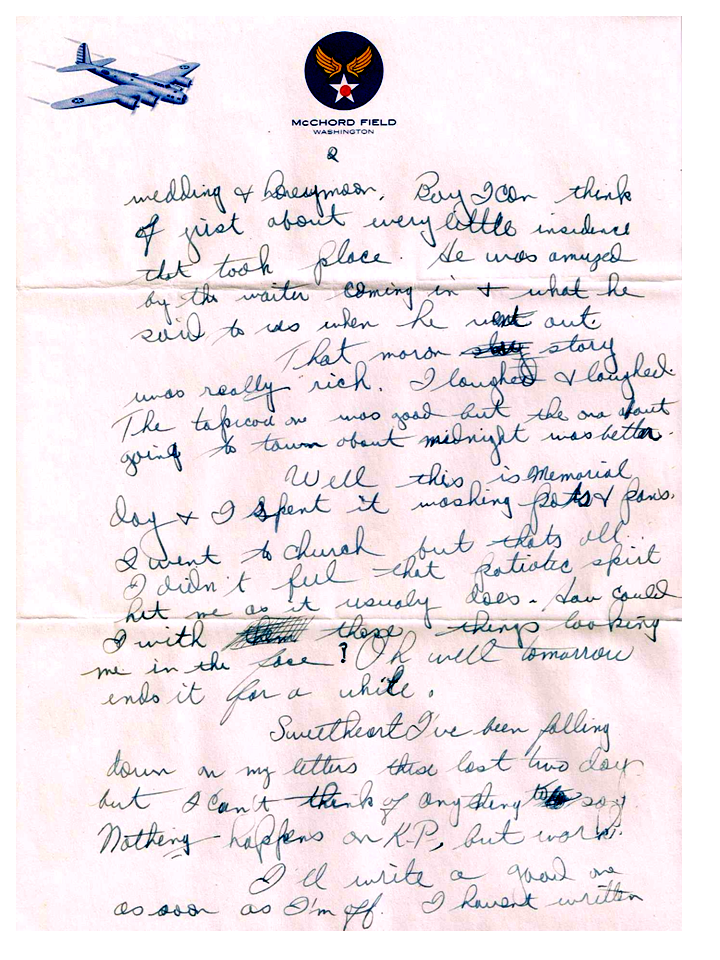 McCHORD FIELD
WASHINGTON
2
wedding & honeymoon. Boy I can think
of just about every little insidence
that took place. He was amuzed
by the waiter coming in & what he
said to us when he went out.
That moron story
was really rich. I laughed & laughed.
The tapicod one was good but the one about
going to town about midnight was better.
Well this is Memorial
day & I spent it washing pots & pans.
I went to church but thats all.
I didn't feel that patiotic spirt
hit me as it usualy does. How could
I with those things looking
me in the face? Oh well tomorrow
ends it for a while.
Sweetheart I've been falling
down on my letters these last two day
but I can't think of anything to say.
Nothing happens on K.P., but work.
I'll write a good one
as soon as I'm off. I havent written